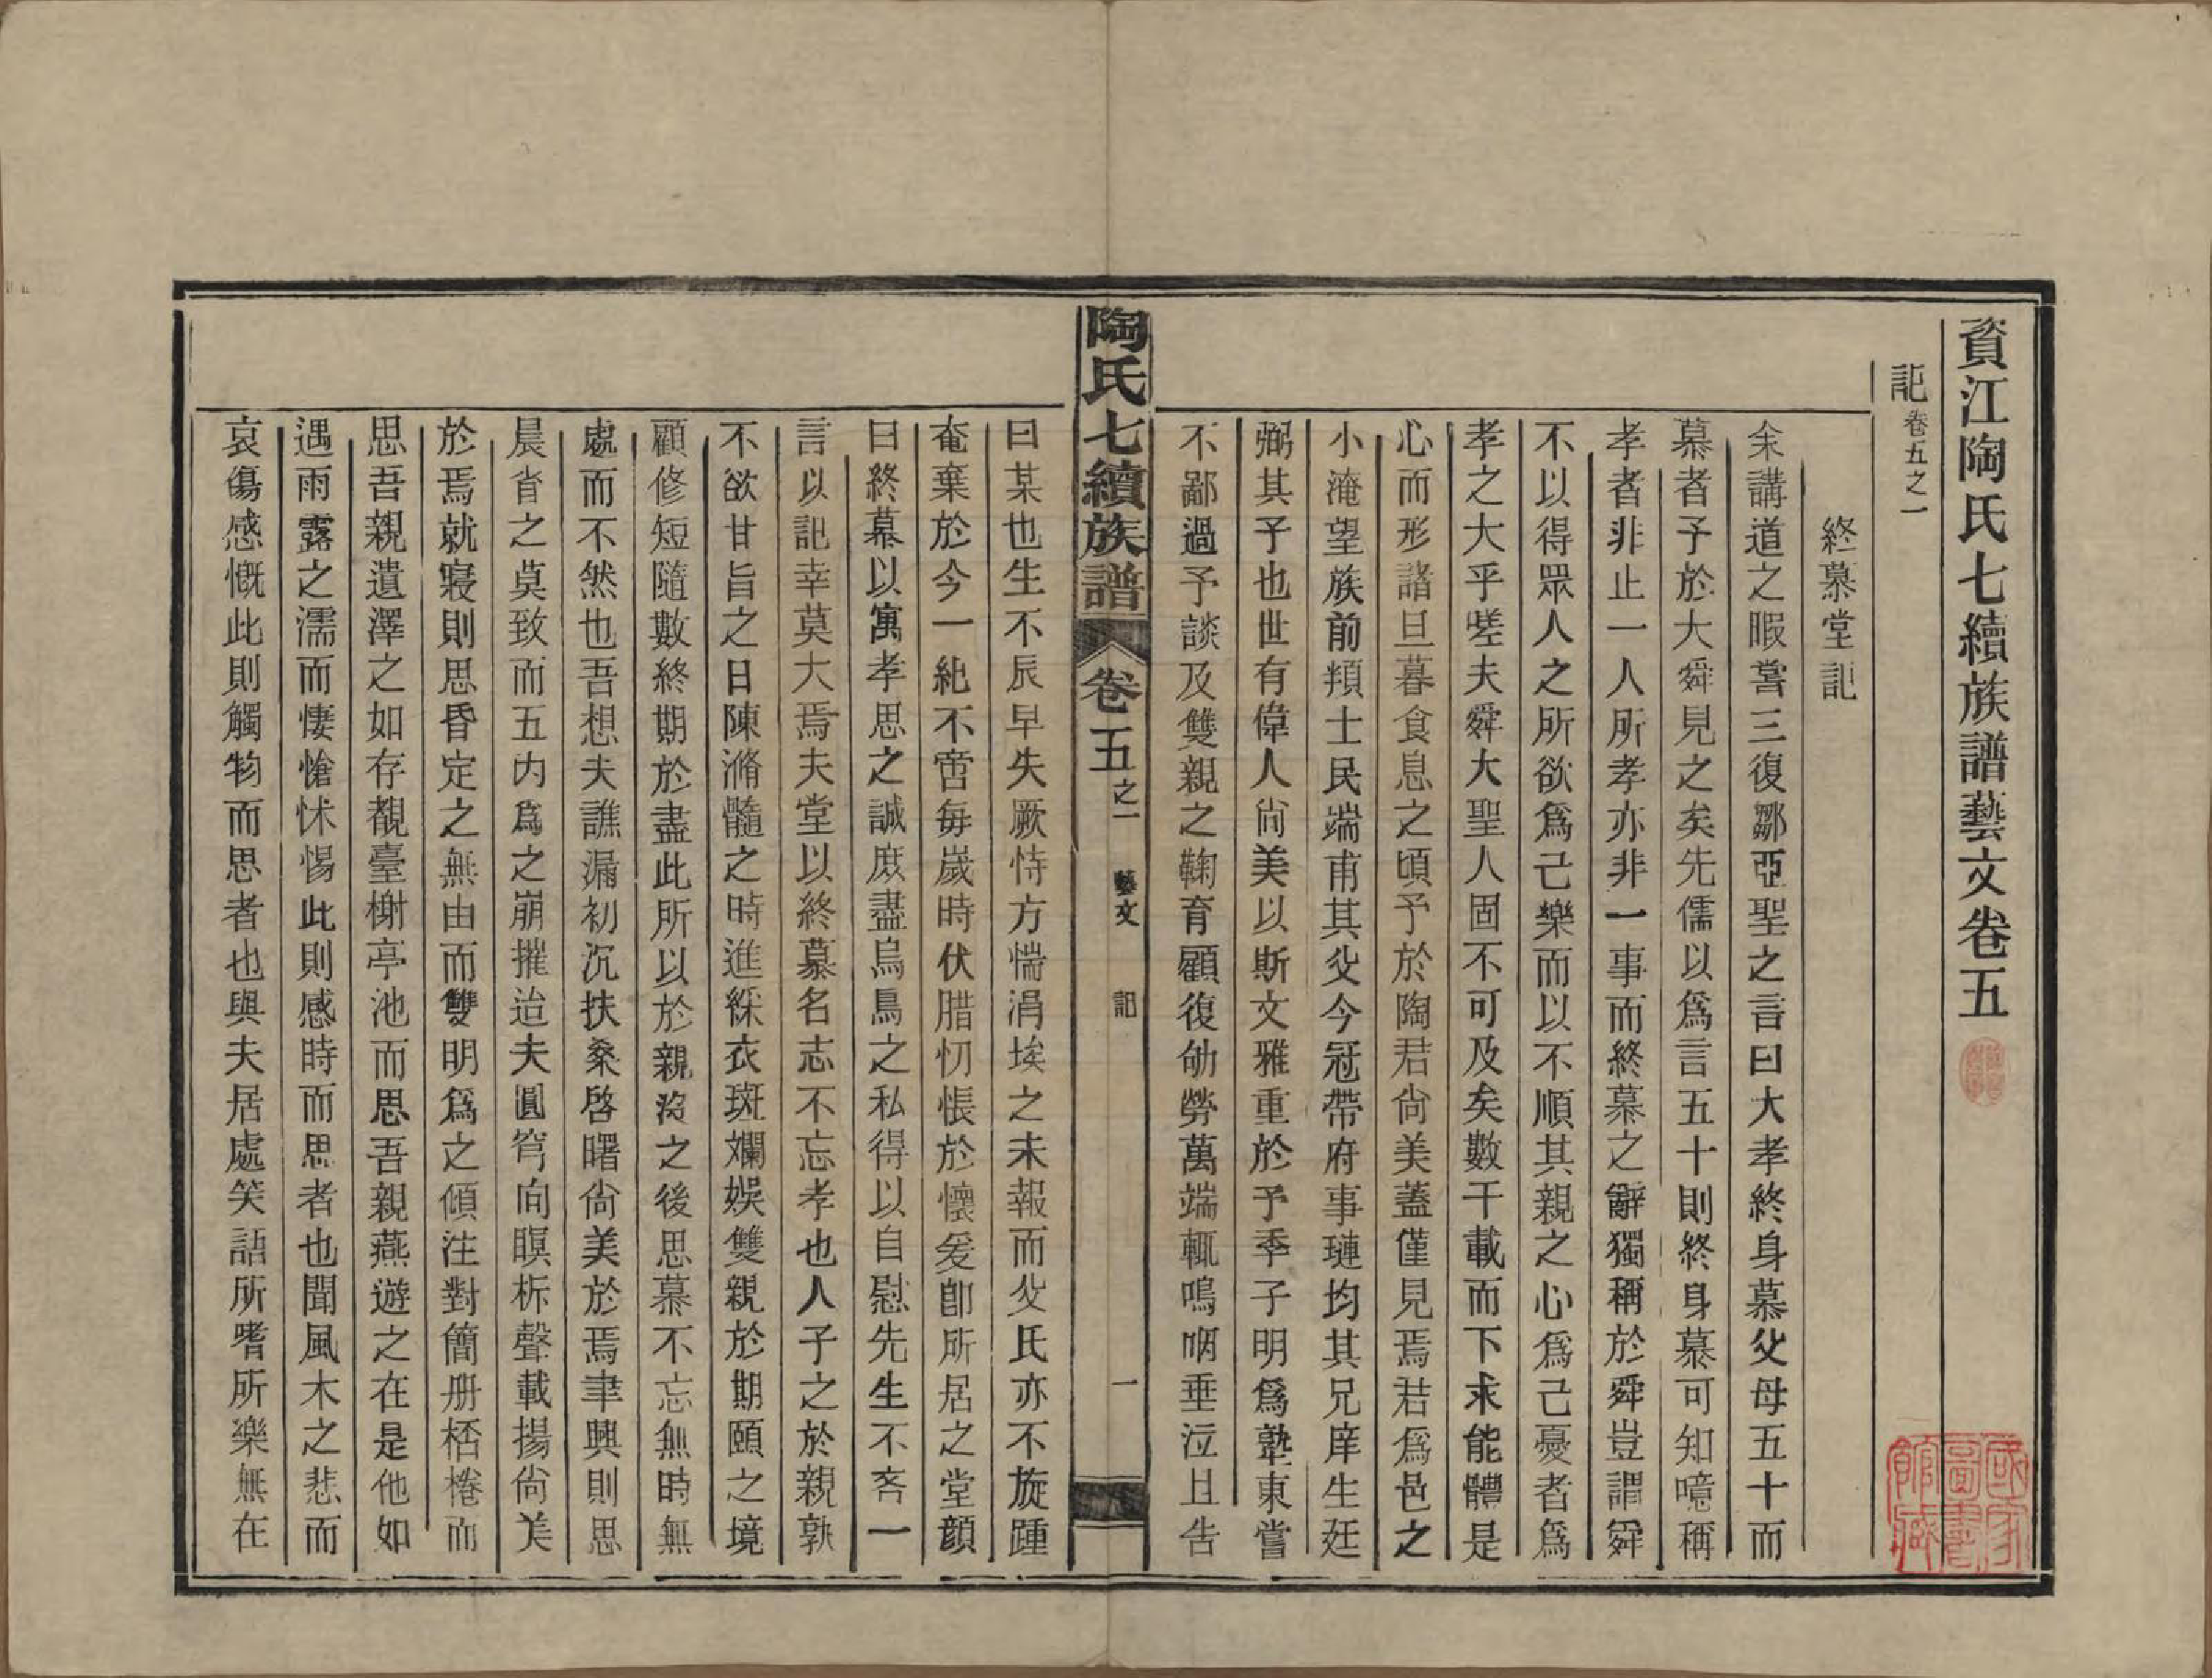 資江陶氏七續族譜藝文卷五
記卷五之一
終慕堂記
余講道之暇嘗三復鄒亞聖之言曰大孝終身慕父母五十而
慕者予於大舜見之矣先儒以爲言五十則終身慕可知噫稱
孝者非止一人所孝亦非一事而終慕之辭獨稱於舜豈謂舜
不以得眾人之所欲爲己樂而以不順其親之心爲己憂者爲
孝之大乎嗟夫舜大聖人固不可及矣數千載而下求能體是
心而形諸旦暮食息之頃予於陶君尙美蓋僅見焉君爲邑之
小淹望族前頖士民端甫其父今冠帶府事璉均其兄庠生廷
弼其子也世有偉人尙美以斯文雅重於予季子明爲塾東嘗
不鄙過予談及雙親之鞠育顧復劬勞萬端輒嗚咽垂泣且告
陶氏七續族譜 卷五之一 藝文 記 一
曰某也生不辰早失厥恃方惴涓埃之未報而父氏亦不旋踵
奄棄於今一紀不啻每歲時伏腊忉悵於懷爰卽所居之堂顏
曰終慕以寓孝思之誠庶盡烏鳥之私得以自慰先生不吝一
言以記幸莫大焉夫堂以終慕名志不忘孝也人子之於親孰
不欲甘旨之日陳滫髓之時進綵衣斑斕娛雙親於期頤之境
顧修短隨數終期於盡此所以於親沒之後思慕不忘無時無
處而不然也吾想夫譙漏初沉扶桑啓曙尙美於焉聿興則思
晨省之莫致而五內爲之崩摧迨夫圓穹向暝柝聲載揚尙美
於焉就寢則思昏定之無由而雙明爲之傾注對簡册桮棬而
思吾親遺澤之如存覩臺榭亭池而思吾親燕遊之在是他如
遇雨露之濡而悽愴怵惕此則感時而思者也聞風木之悲而
哀傷感慨此則觸物而思者也與夫居處笑語所嗜所樂無在
國家圖書館藏